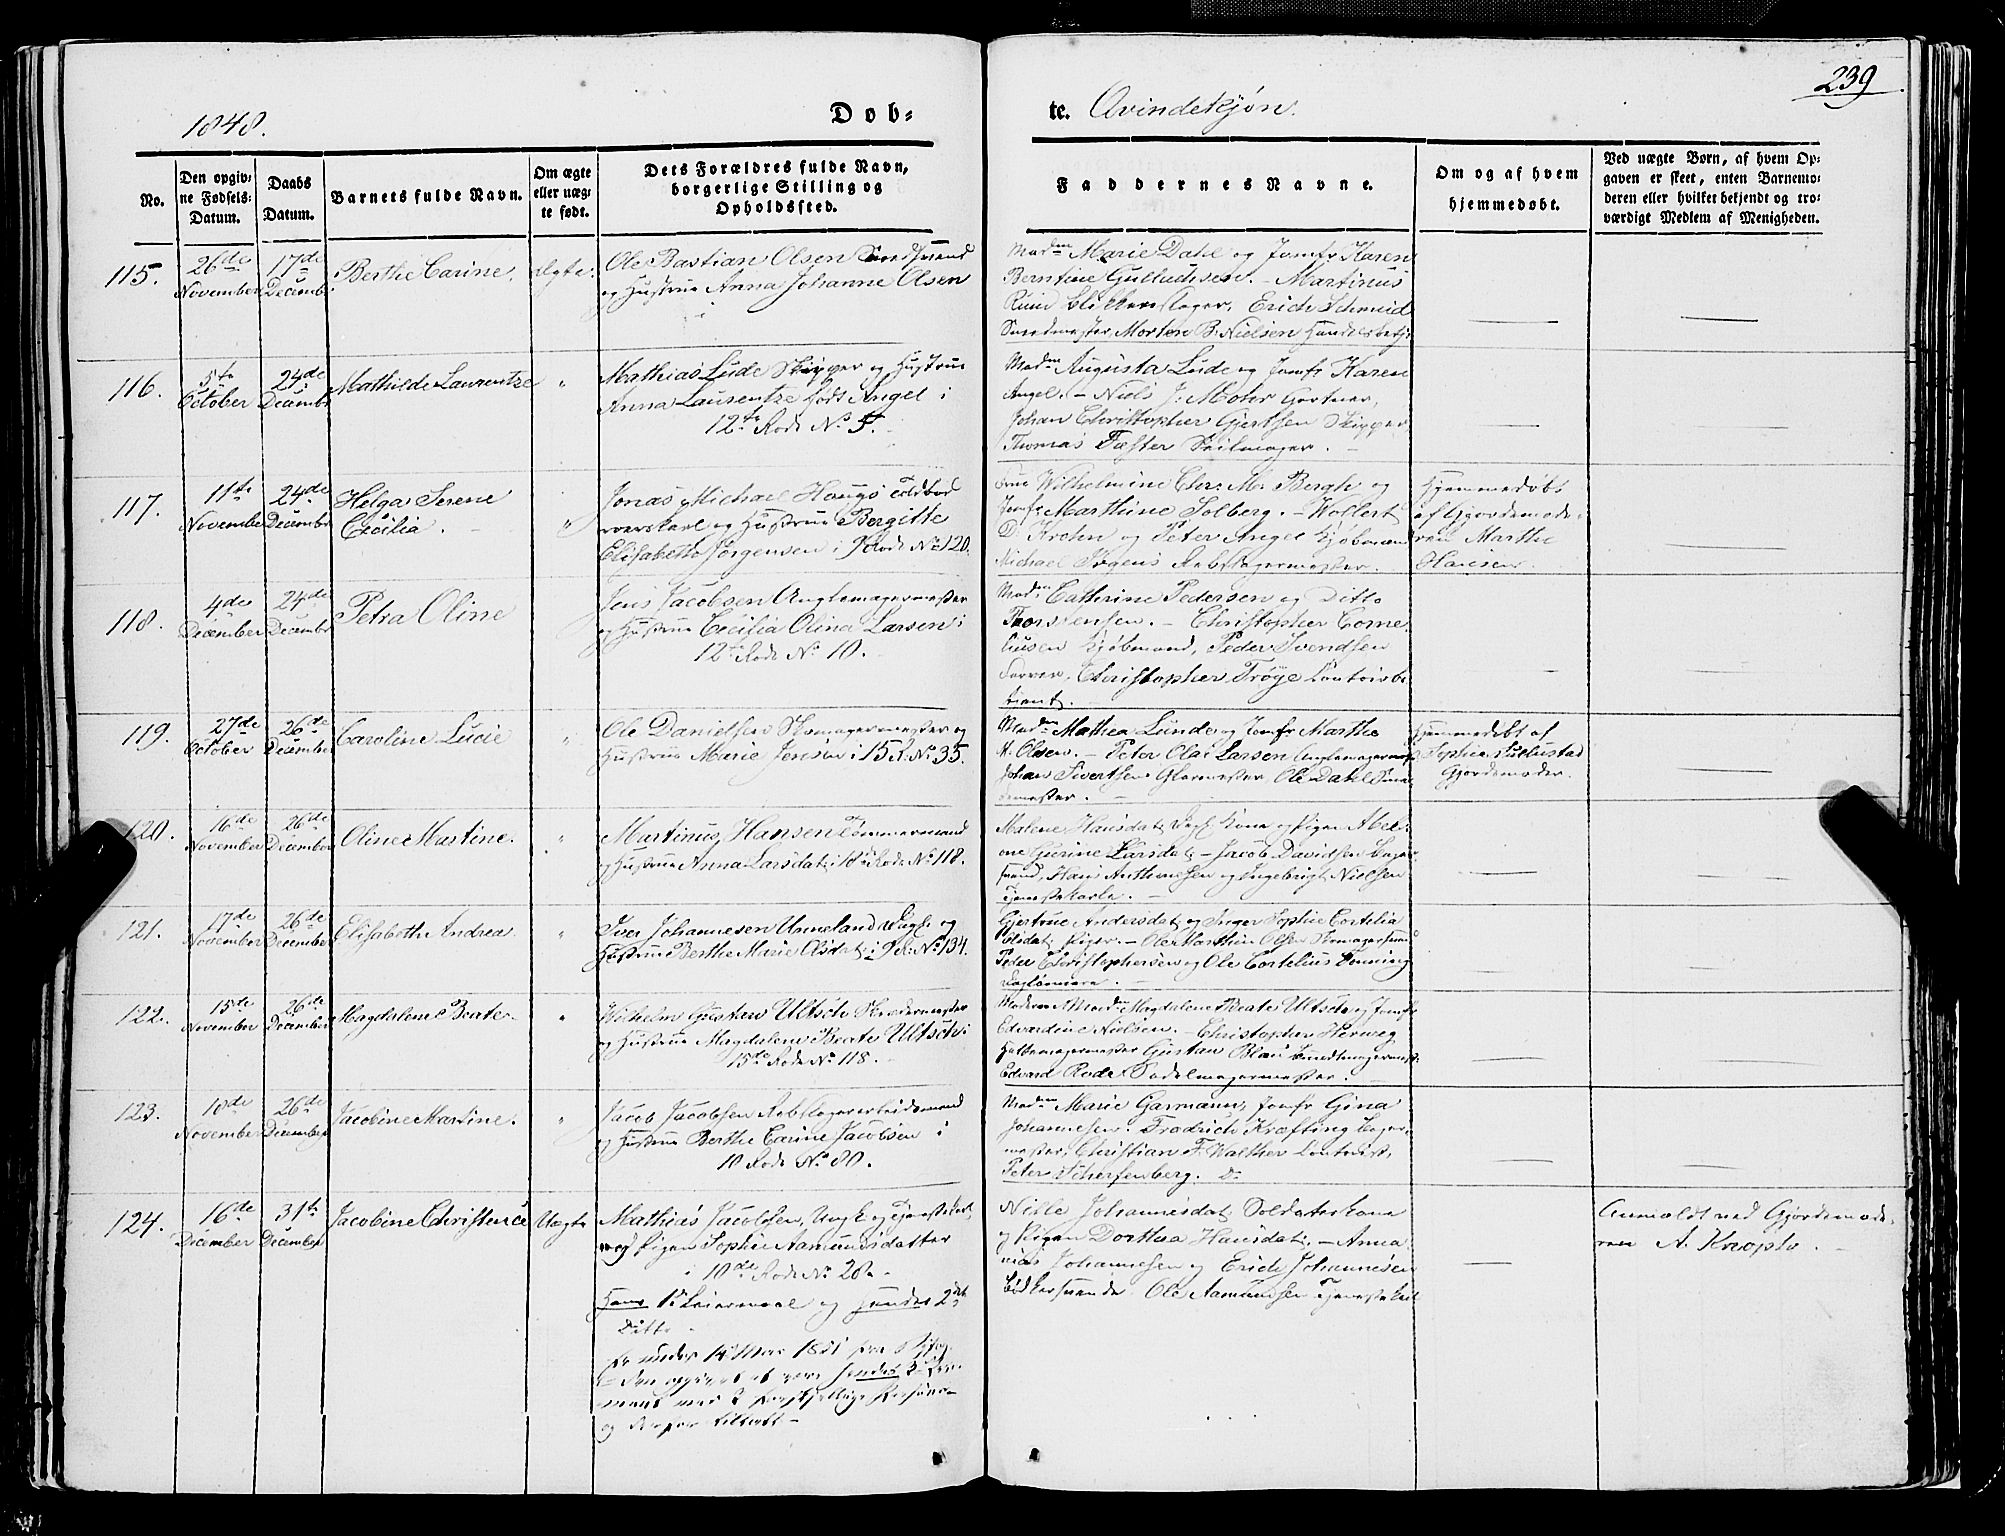 239
1848.
Døb-
te. Qvindekjøn.
No.
Den opgivne Fødsels-Datum.
Daabs Datum.
Barnets fulde Navn.
Om ægte eller uægte født.
Dets Forældres fulde Navn, borgerlige Stilling og Opholdssted.
Faddernes Navne.
Om og af hvem hjemmedøbt.
Ved uægte Børn, af hvem Opgaven er skeet, enten Barnemoderen eller hvilket bekjendt og troværdigt Medlem af Menigheden.
115. 26de November 17de December Berthe Carine. Ægte.
Ole Bastian Olsen
og Hustrue Anna Johanne Olsen
Madm Marie Dahl og Jomfr Karen
Berntine Gulluchsen. - Martinus
Erich Schmid
Smedmester Morten B. Nielsen
116. 5te October 24de December Mathilde Laurentze "
Mathias Lude Skipper og Hustrue
Anna Laurentze født Angel i
12te Rode No 5.
Madm Augusta Lude og Jomfr Karen
Angel. - Niels J. Mohr Gartner,
Johan Christopher Gjertsen Skipper
Thomas Fæster Seilmager.
117. 11te November 24de December Helga Serene
Cecilia. "
Jonas Michael Haugs Toldbod
roerskarl og Hustrue Bergitte
Elisabeth Jørgensen i 9 Rode No 120.
Frue Wilhelmine Chr. M. Bergh og
Jomfr Marthine Solberg. - Wollert
D. Krohn og Peter Angel Kjøbmænd
Michael Rebslagermester.
Hjemmedøbt
af Gjordemode-
ren Marthe
Hansen.
118. 4de December 24de December Petra Oline
Jens Jacobsen
og Hustrue Cecilia Olina Larsen i
12te Rode No 10.
Madm Cathrine Pedersen og Ditto
Thorstensen. - Christopher Corne-
liusen Kjøbmand, Peder Svendsen
Farver, Christopher Trøye Contoirbe-
tient.
119. 27de October 26de December Caroline Lucie "
Ole Danielsen Skomagermester og
Hustrue Marie Jensen i 15 R. No 35.
Madm Mathea Lunde og Jomfr Marthe
A. Olsen. - Peter Olai Larsen
Johan Sivertsen Glarmester, Ole Dahl
Hjemmedøbt af
Sophie
Gjordemoder.
120. 16de November 26de December Oline Martine. "
Martinus Hansen Tømmermand
og Hustrue Anna Larsdatr i 18de Rode No 118.
Malene Hansdatr Kone og Pigen Abel-
one Gurine Larsdatr - Jacob Davidsen Bager-
svend, Hans Anthonesen og Ingebrigt Nielsen
Tjenestekarle.
121. 17de November 26de December Elisabeth Andrea. "
Iver Johannesen Unneland og
Hustrue Berthe Marie Olsdatr i 9 R. No 134.
Gjertrue Andersdatr og Inger Sophie Cortelia
Olsdatr Piger. - Ole Marthin Olsen
Peder Christophersen og Ole Cortelius Lønning
Dagleiere.
122. 15de November 26de December Magdalene Beate "
Wilhelm Gustav Ultsch Skredermester
og Hustrue Magdalene Beate Ultsch i
15de Rode No 118.
Moderen Madm Magdalene Beate Ultsch og Jomfr
Edvardine Nielsen. - Christopher Herweg
Hattemagermester Gustav Blau
Edvard Rode Sadelmagermester.
123. 18de November 26de December Jacobine Martine. "
Jacob Jacobsen Rebslagerarbeidsmand
og Hustrue Berthe Carine Jacobsen i
18 Rode No 80.
Madm Marie Garmann, Jomfr Gina
Johannesen. Fredrich Kræfting Bager-
mester, Christian F. Walther Contoirist,
Peter Scherfenberg. Do
124. 16de December 31te December Jacobine Christence Uægte
Mathias Jacobsen, Ungk. og Tjenestekarl,
og Pigen Sophie Aamundsdatter
i 18de Rode No 28.
Hans 1ste Leiermaal og hendes 2det
Ditto.
Nille Johannesdatr Soldaterkone
og Pigen Dorthea Hansdatr. - Anna-
nias Johannesen og Erich Johannesen
Bødkersvende Ole Aamundsen Tjenestekarl
Anmældt ved Gjordemode-
ren A. Knoph.